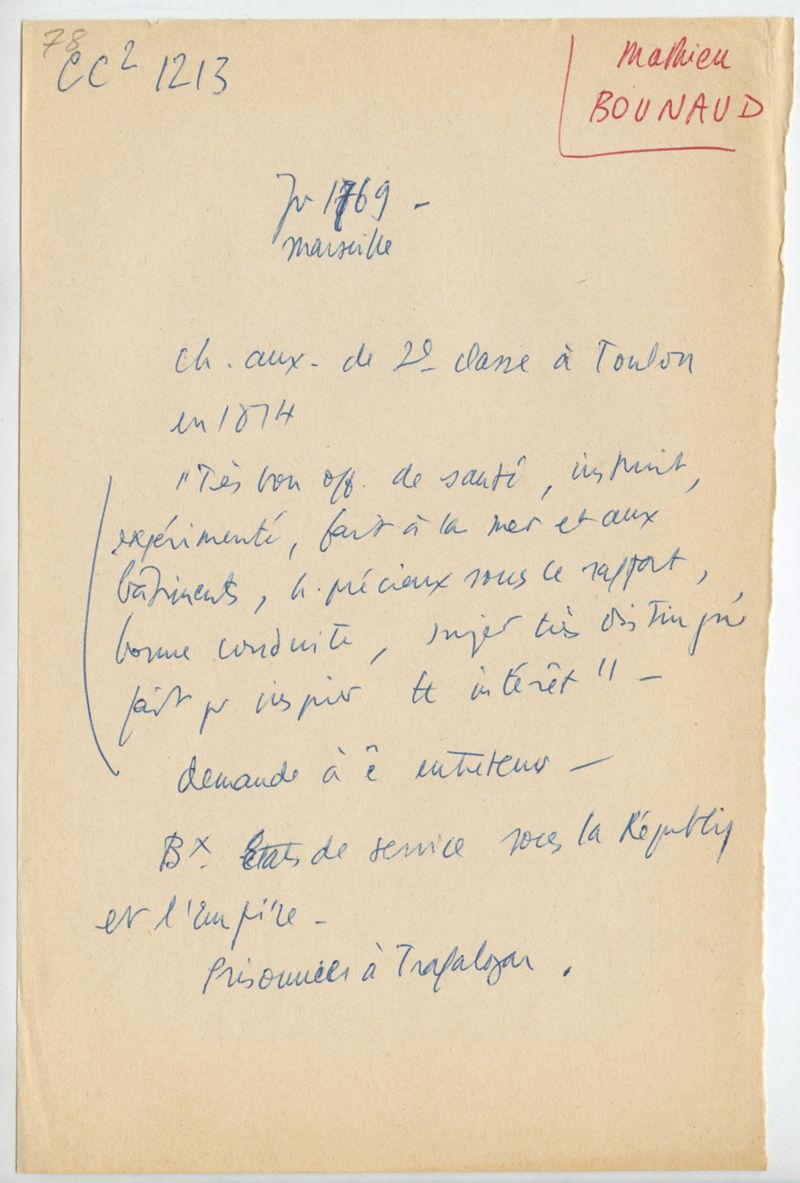 78
CC² 1213
Mathieu
BOUNAUD
Jr 1769 -
Marseille
ch. aux. de 2e classe à Toulon
en 1814
"Très bon off. de santé, instruit,
expérimenté, fait à la mer et aux
bâtiments, h. précieux sous ce rapport,
bonne conduite, sujet très distingué
fait pr inspirer tt intérêt" -
demande à ê entretenu -
Bx. Etats de service sous la Républiq
et l'Empire -
Prisonnier à Trafalgar.